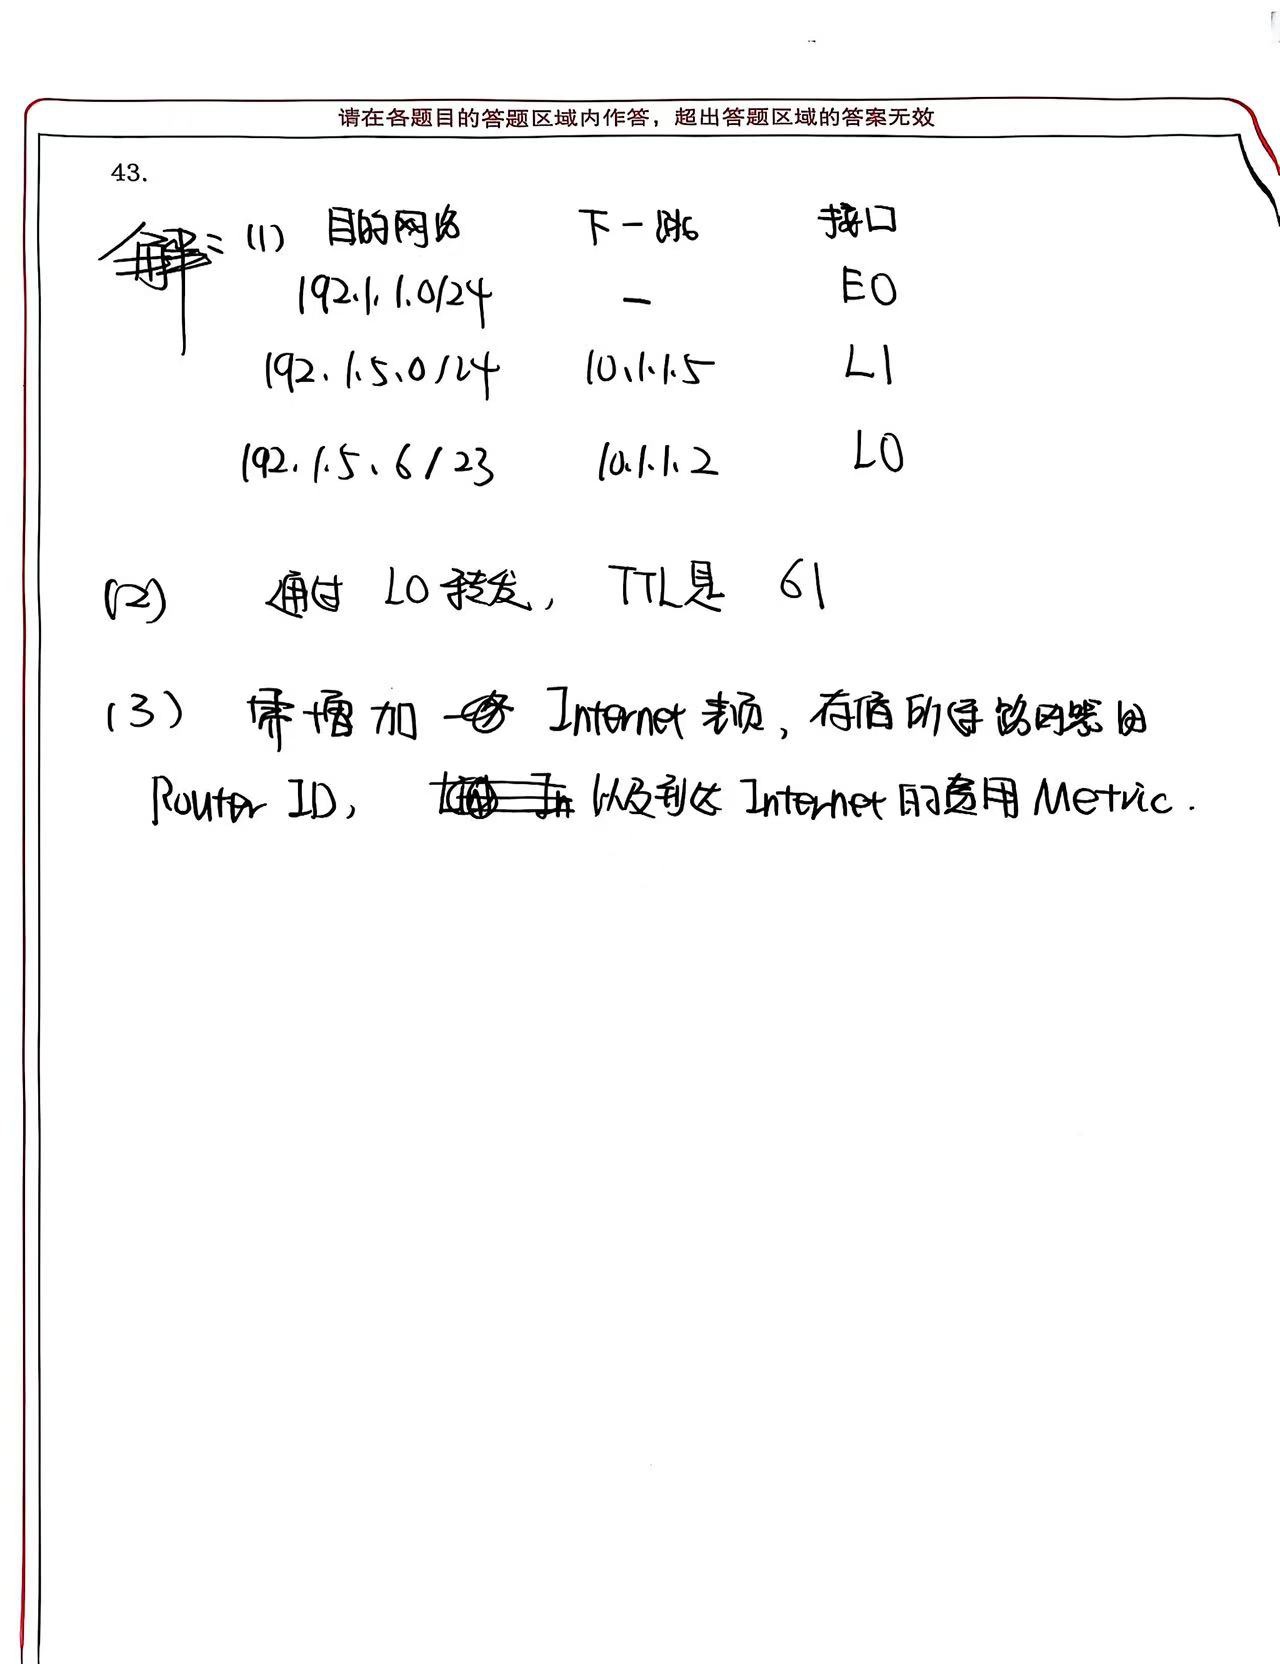 请在各题目的答题区域内作答，超出答题区域的答案无效
43.
解：(1) 目的网络 下一跳 接口
192.1.1.0/24 — E0
192.1.5.0/24 10.1.1.5 L1
192.1.5.6/23 10.1.1.2 L0
(2) 通过 L0 转发, TTL是 61
(3) 需增加 Internet 表项, 存储所连路由器的
Router ID, 以及到达 Internet 的费用 Metric.